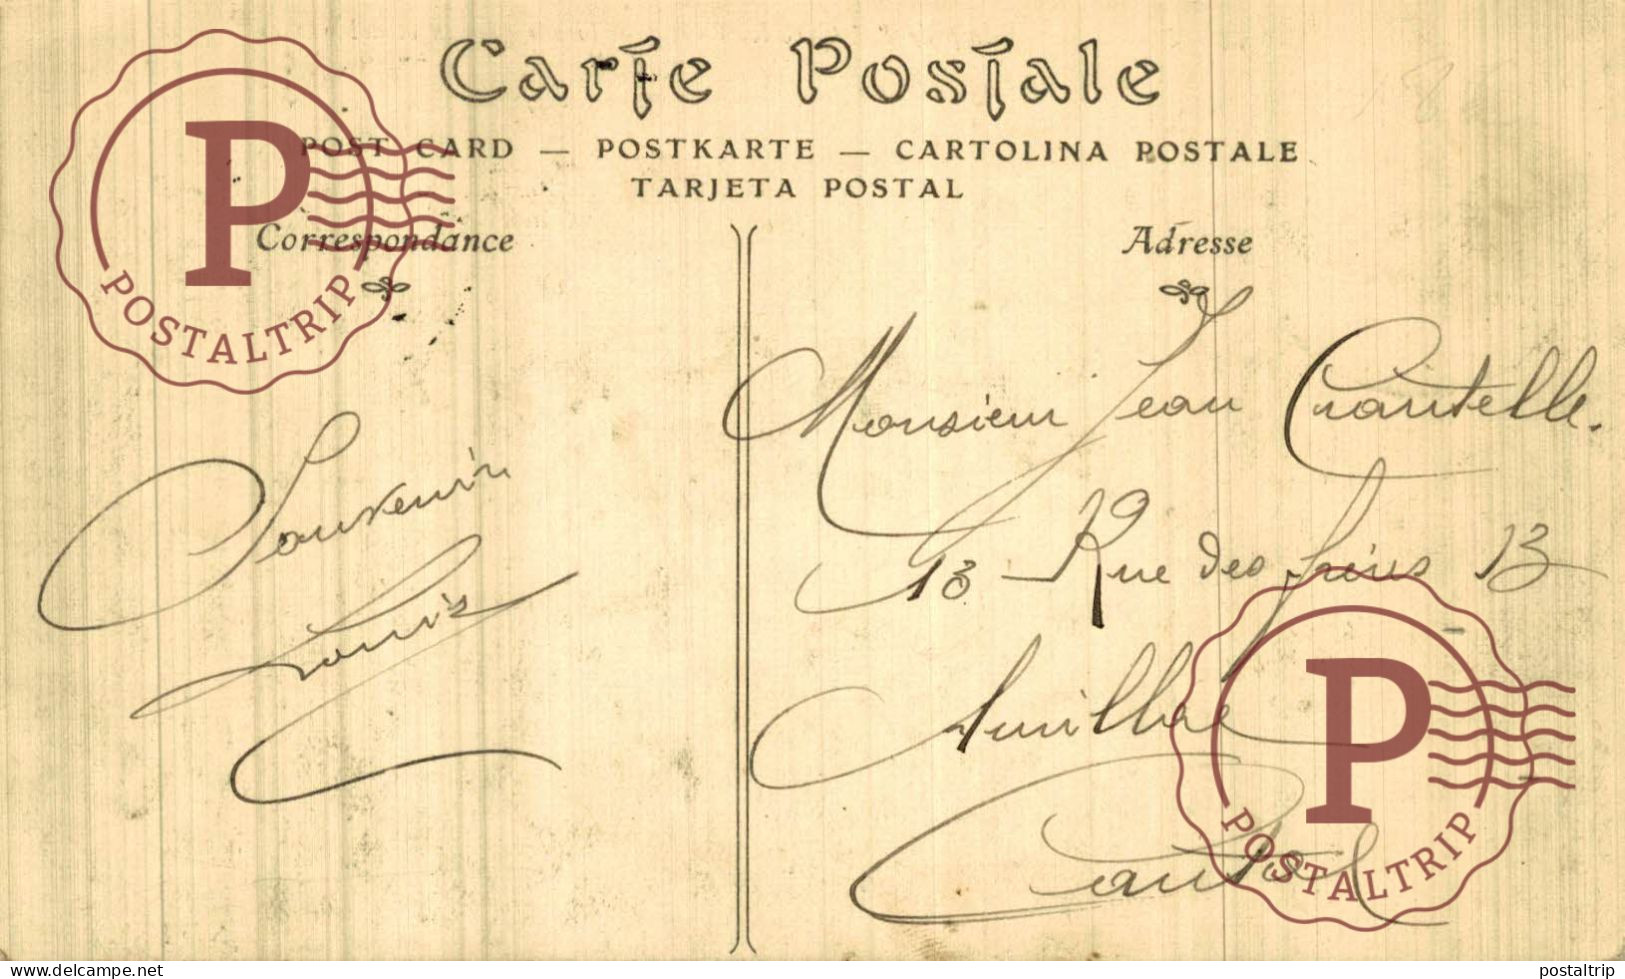 Carte Postale
POST CARD — POSTKARTE — CARTOLINA POSTALE
TARJETA POSTAL
Correspondance
Adresse
Souvenir
Louis
Monsieur Jean Chantelle.
13 – Rue des frères 13
Aurillac
Cantal
POSTALTRIP
POSTALTRIP
www.delcampe.net
postaltrip